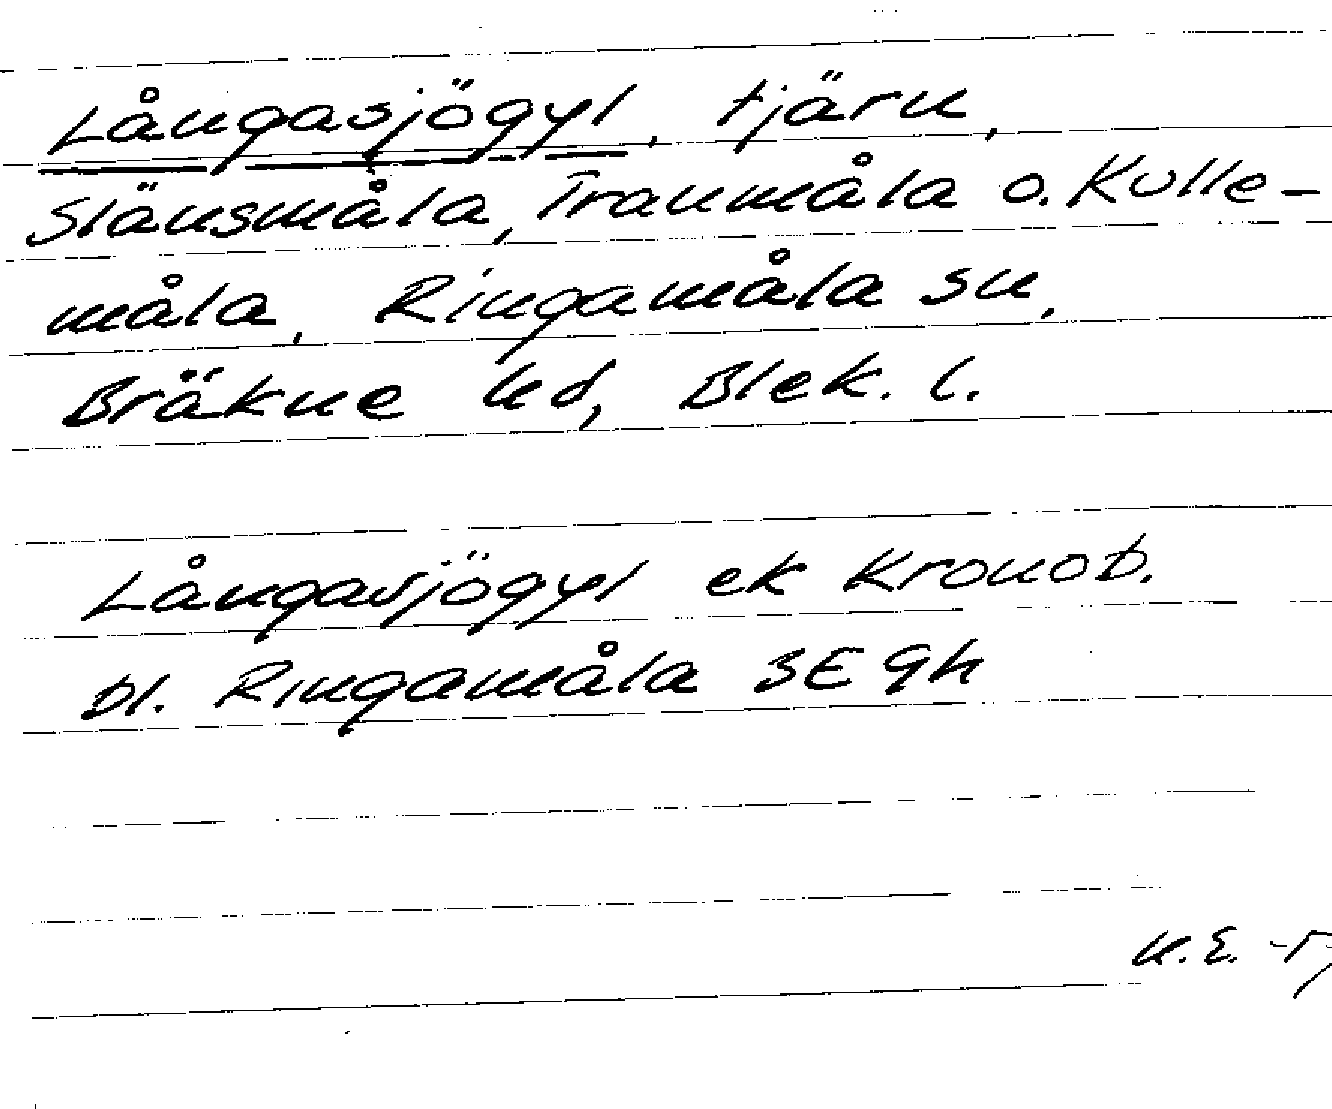 Långasjögyl, tjärn,
Slänsmåla, Tranmåla o. Kulle-
måla, Ringamåla sn,
Bräkne hd, Blek. l.
Långasjögyl ek Kronob.
bl. Ringamåla 3E9h